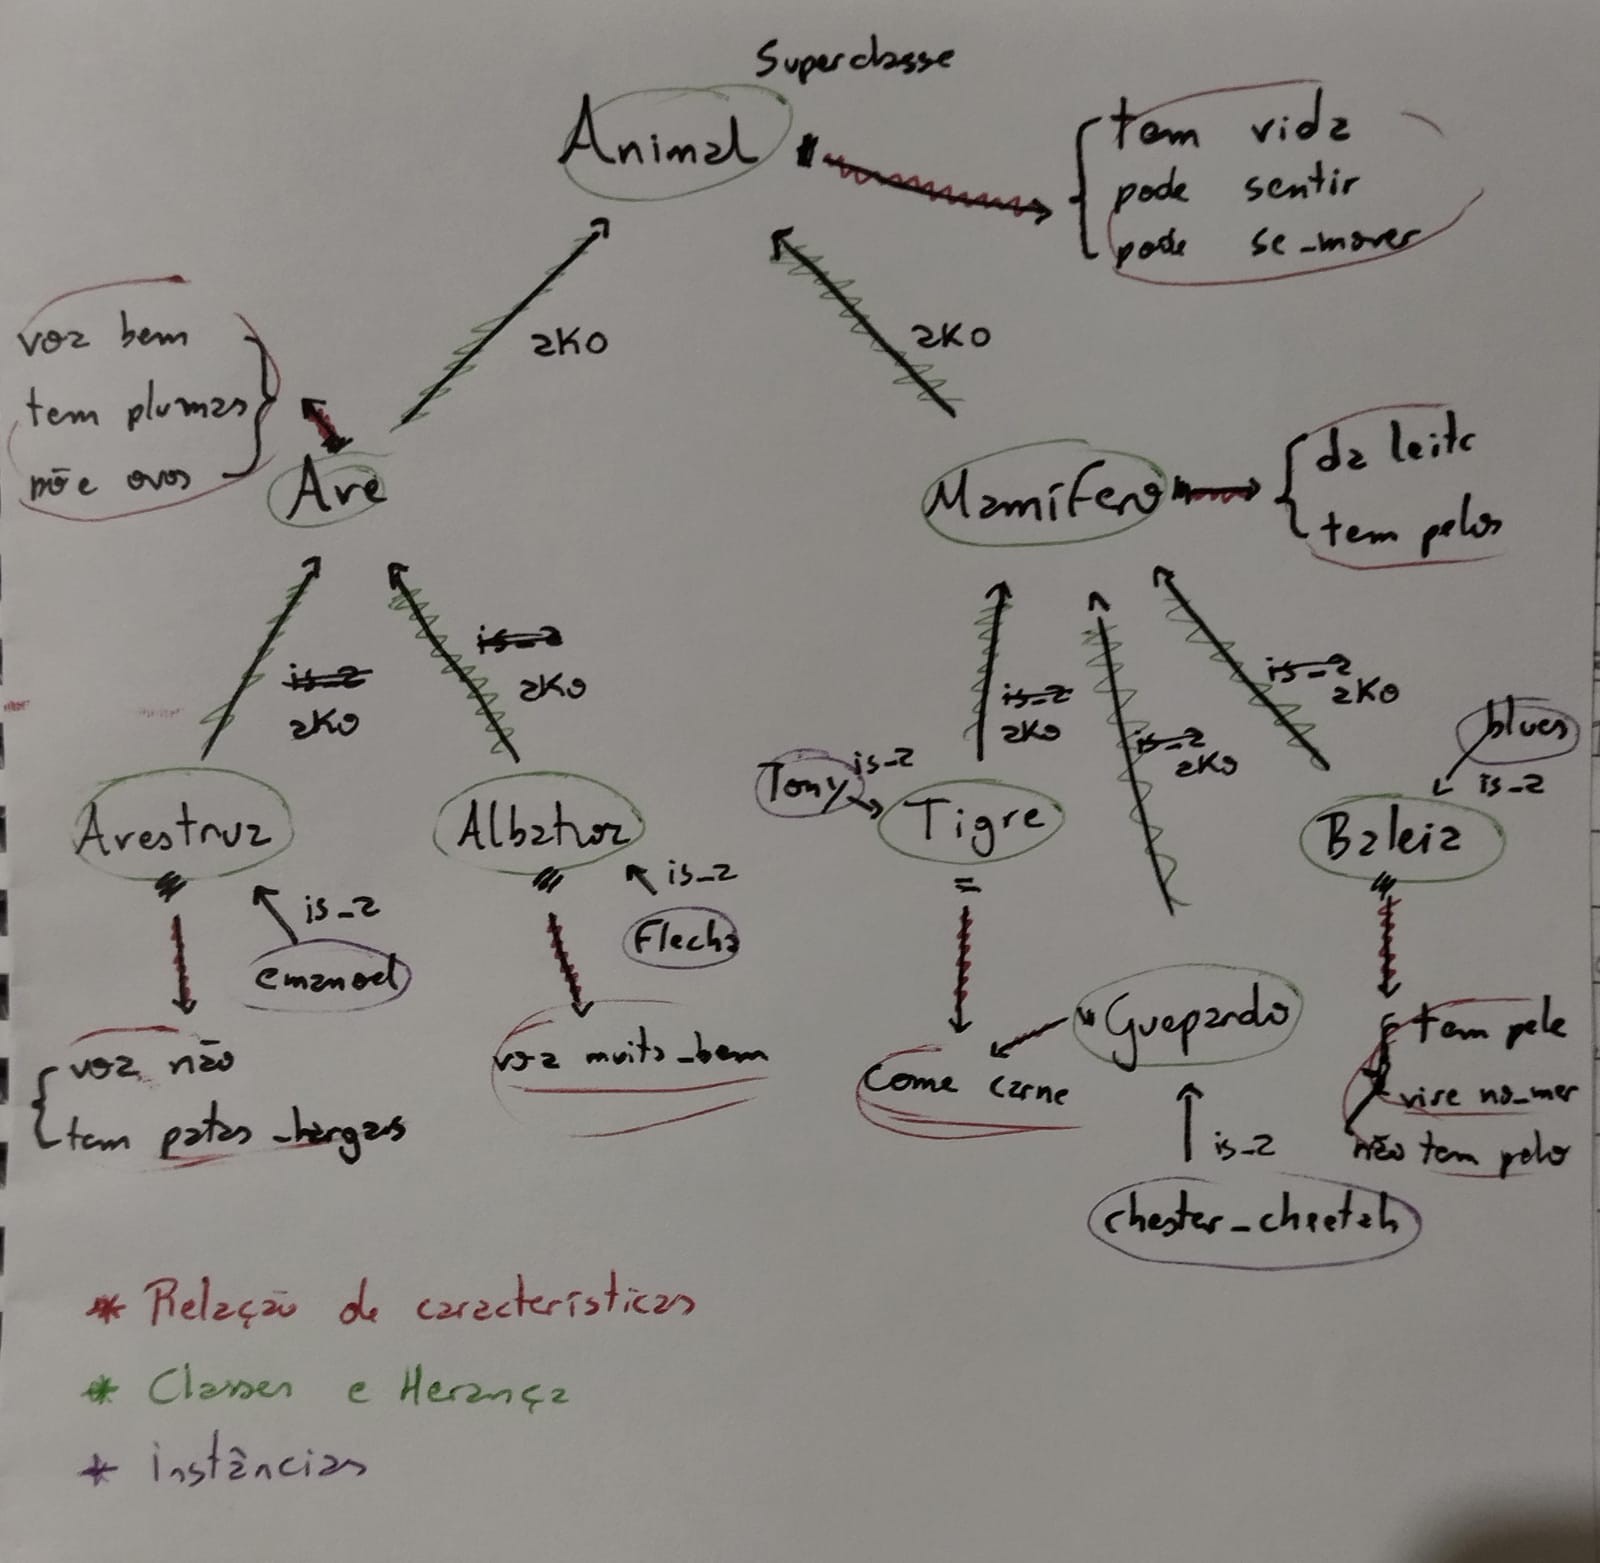 Superclasse
Animal
tem vida
pode sentir
pode se_mover
ako
ako
voa bem
tem plumas
põe ovos
Ave
Mamífero
da leite
tem pelos
is_a
ako
is_a
ako
is_a
ako
is_a
ako
is_a
ako
blues
is_a
Tony
is_a
Avestruz
Albatroz
Tigre
Baleia
is_a
emanoel
is_a
Flecha
voa não
tem patas_largas
voa muito_bem
Come carne
Guepardo
tem pele
vive no_mar
não tem pelo
is_a
chester_cheetah
* Relação de características
* Classes e Herança
* instâncias